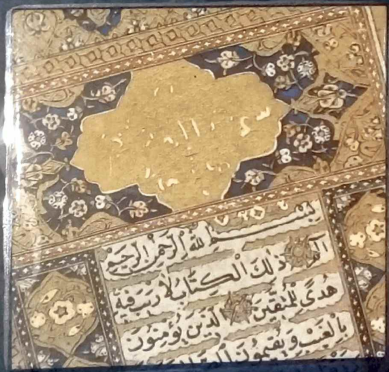 بسم الله الرحمن الرحيم
الم ذلك الكتاب لا ريب فيه
هدى للمتقين الذين يؤمنون
بالغيب ويقيمون